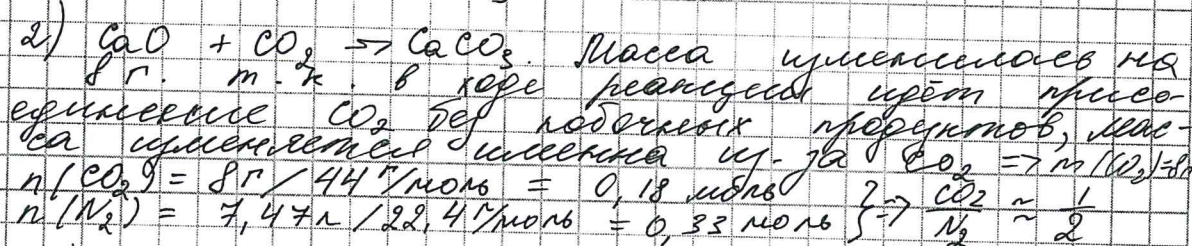 2) CaO + CO₂ => CaCO₃. Масса изменилась на
8 г. т. к. в ходе реакции идёт присо-
единение CO₂ без побочных продуктов, мас-
са изменяется именна из-за CO₂ => m(CO₂)=8г
n(CO₂) = 8г/44 г/моль = 0,18 моль
n(N₂) = 7,47л/22,4 г/моль = 0,33 моль } => CO₂/N₂ ≈ 1/2